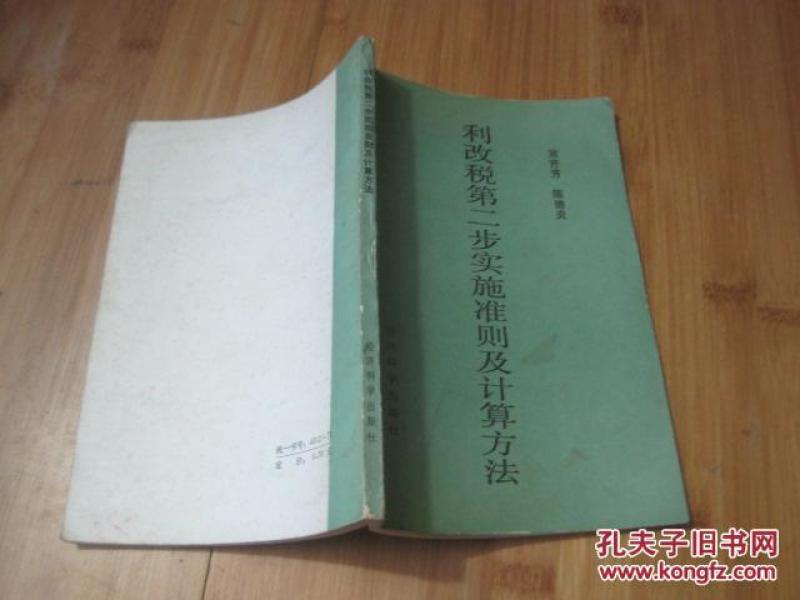 利改税第二步实施准则及计算方法
陈德炎
利改税第二步实施准则及计算方法
经济科学出版社
统一书号:
定价:
孔夫子旧书网
www.kongfz.com